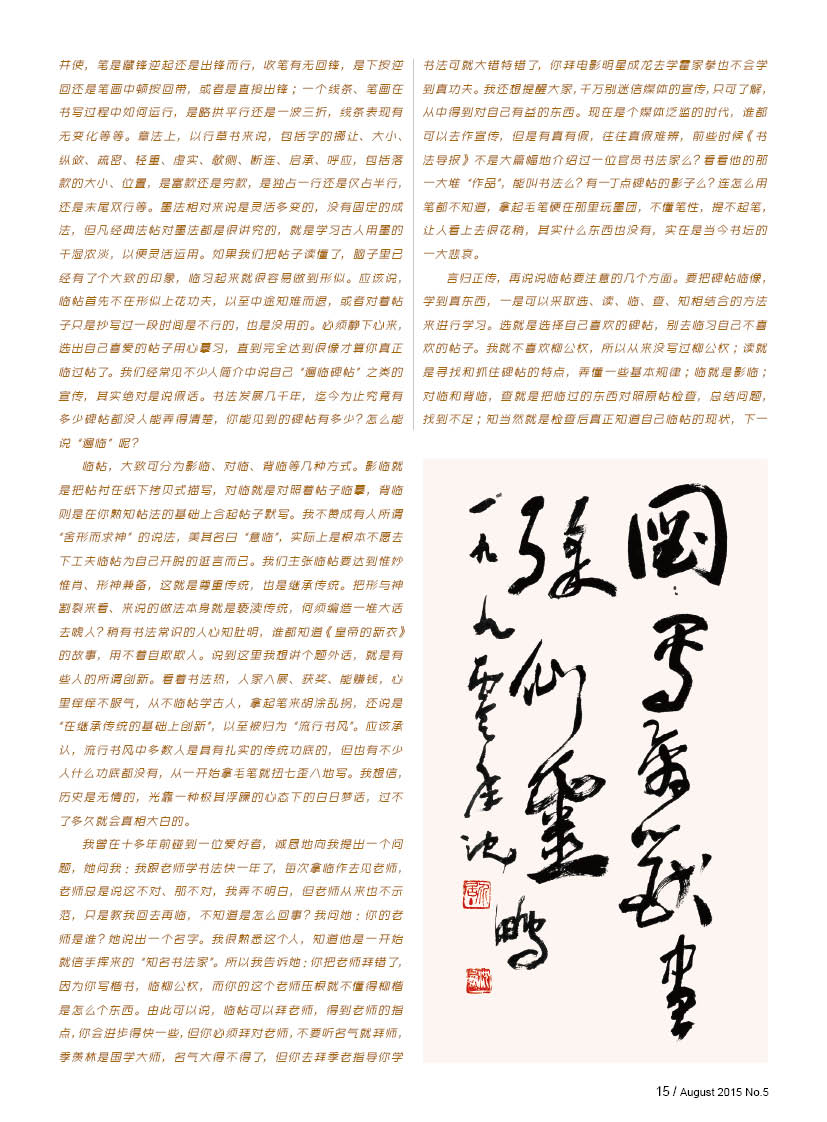 并使，笔是藏锋逆起还是出锋而行，收笔有无回锋，是下按逆
回还是笔画中顿按回带，或者是直接出锋；一个线条、笔画在
书写过程中如何运行，是略拱平行还是一波三折，线条表现有
无变化等等。章法上，以行草书来说，包括字的挪让、大小、
纵敛、疏密、轻重、虚实、欹侧、断连、启承、呼应，包括落
款的大小、位置，是富款还是穷款，是独占一行还是仅占半行，
还是末尾双行等。墨法相对来说是灵活多变的，没有固定的成
法，但凡经典法帖对墨法都是很讲究的，就是学习古人用墨的
干湿浓淡，以便灵活运用。如果我们把帖子读懂了，脑子里已
经有了个大致的印象，临习起来就很容易做到形似。应该说，
临帖首先不在形似上花功夫，以至中途知难而退，或者对着帖
子只是抄写过一段时间是不行的，也是没用的。必须静下心来，
选出自己喜爱的帖子用心摹习，直到完全达到很像才算你真正
临过帖了。我们经常见不少人简介中说自己“遍临碑帖”之类的
宣传，其实绝对是说假话。书法发展几千年，迄今为止究竟有
多少碑帖都没人能弄得清楚，你能见到的碑帖有多少？怎么能
说“遍临”呢？
临帖，大致可分为影临、对临、背临等几种方式。影临就
是把帖衬在纸下拷贝式描写，对临就是对照着帖子临摹，背临
则是在你熟知帖法的基础上合起帖子默写。我不赞成有人所谓
“舍形而求神”的说法，美其名曰“意临”，实际上是根本不愿去
下工夫临帖为自己开脱的诳言而已。我们主张临帖要达到惟妙
惟肖、形神兼备，这就是尊重传统，也是继承传统。把形与神
割裂来看、来说的做法本身就是亵渎传统，何须编造一堆大话
去唬人？稍有书法常识的人心知肚明，谁都知道《皇帝的新衣》
的故事，用不着自欺欺人。说到这里我想讲个题外话，就是有
些人的所谓创新。看着书法热，人家入展、获奖、能赚钱，心
里痒痒不服气，从不临帖学古人，拿起笔来胡涂乱拐，还说是
“在继承传统的基础上创新”，以至被归为“流行书风”。应该承
认，流行书风中多数人是具有扎实的传统功底的，但也有不少
人什么功底都没有，从一开始拿毛笔就扭七歪八地写。我想信，
历史是无情的，光靠一种极其浮躁的心态下的白日梦话，过不
了多久就会真相大白的。
我曾在十多年前碰到一位爱好者，诚恳地向我提出一个问
题，她问我：我跟老师学书法快一年了，每次拿临作去见老师，
老师总是说这不对、那不对，我弄不明白，但老师从来也不示
范，只是教我回去再临，不知道是怎么回事？我问她：你的老
师是谁？她说出一个名字。我很熟悉这个人，知道他是一开始
就信手挥来的“知名书法家”。所以我告诉她：你把老师拜错了，
因为你写楷书，临柳公权，而你的这个老师压根就不懂得柳楷
是怎么个东西。由此可以说，临帖可以拜老师，得到老师的指
点，你会进步得快一些，但你必须拜对老师，不要听名气就拜师，
季羡林是国学大师，名气大得不得了，但你去拜季老指导你学
书法可就大错特错了，你拜电影明星成龙去学霍家拳也不会学
到真功夫。我还想提醒大家，千万别迷信媒体的宣传，只可了解，
从中得到对自己有益的东西。现在是个媒体泛监的时代，谁都
可以去作宣传，但是有真有假，往往真假难辨，前些时候《书
法导报》不是大篇幅地介绍过一位官员书法家么？看看他的那
一大堆“作品”，能叫书法么？有一丁点碑帖的影子么？连怎么用
笔都不知道，拿起毛笔硬在那里玩墨团，不懂笔性，提不起笔，
让人看上去很花稍，其实什么东西也没有，实在是当今书坛的
一大悲哀。
言归正传，再说说临帖要注意的几个方面。要把碑帖临像，
学到真东西，一是可以采取选、读、临、查、知相结合的方法
来进行学习。选就是选择自己喜欢的碑帖，别去临习自己不喜
欢的帖子。我就不喜欢柳公权，所以从来没写过柳公权；读就
是寻找和抓住碑帖的特点，弄懂一些基本规律；临就是影临；
对临和背临，查就是把临过的东西对照原帖检查，总结问题，
找到不足；知当然就是检查后真正知道自己临帖的现状，下一
圖寫禽獸畫
彩仙靈
一九九零年 沈鹏
15 / August 2015 No.5